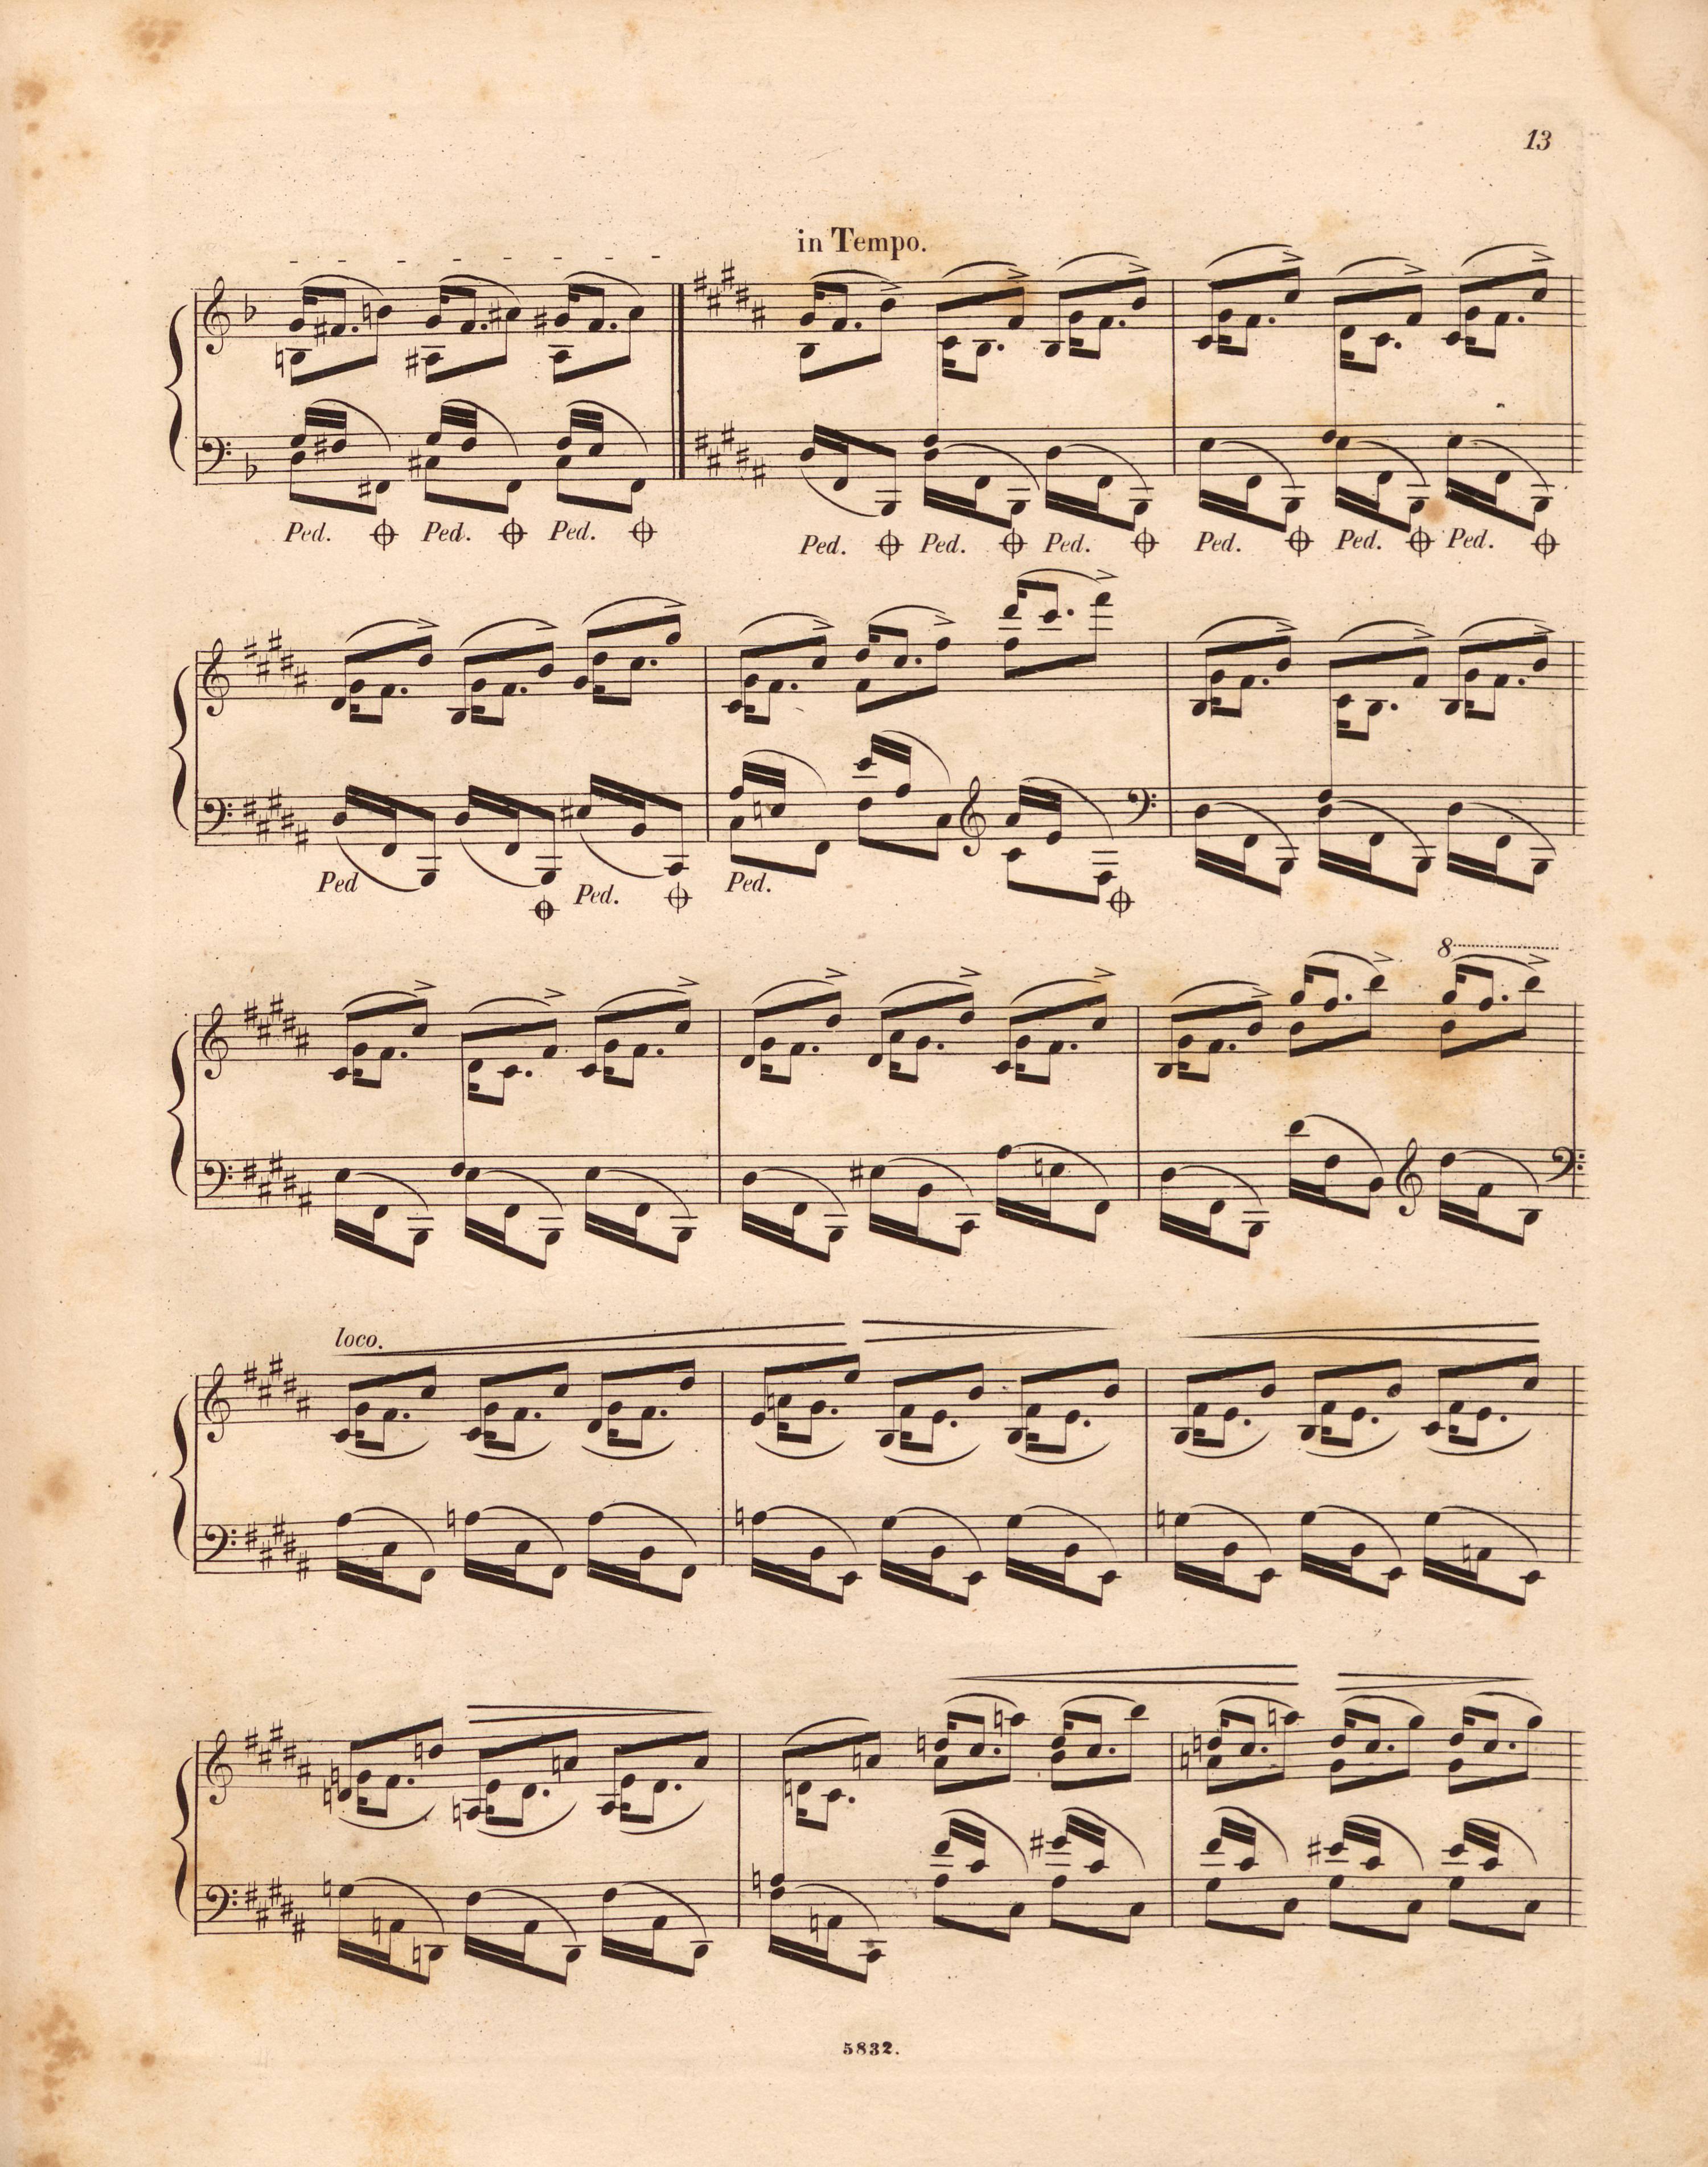 13
in Tempo.
Ped. Ped. Ped. Ped. Ped. Ped. Ped. Ped. Ped.
Ped Ped. Ped.
8
loco.
5832.